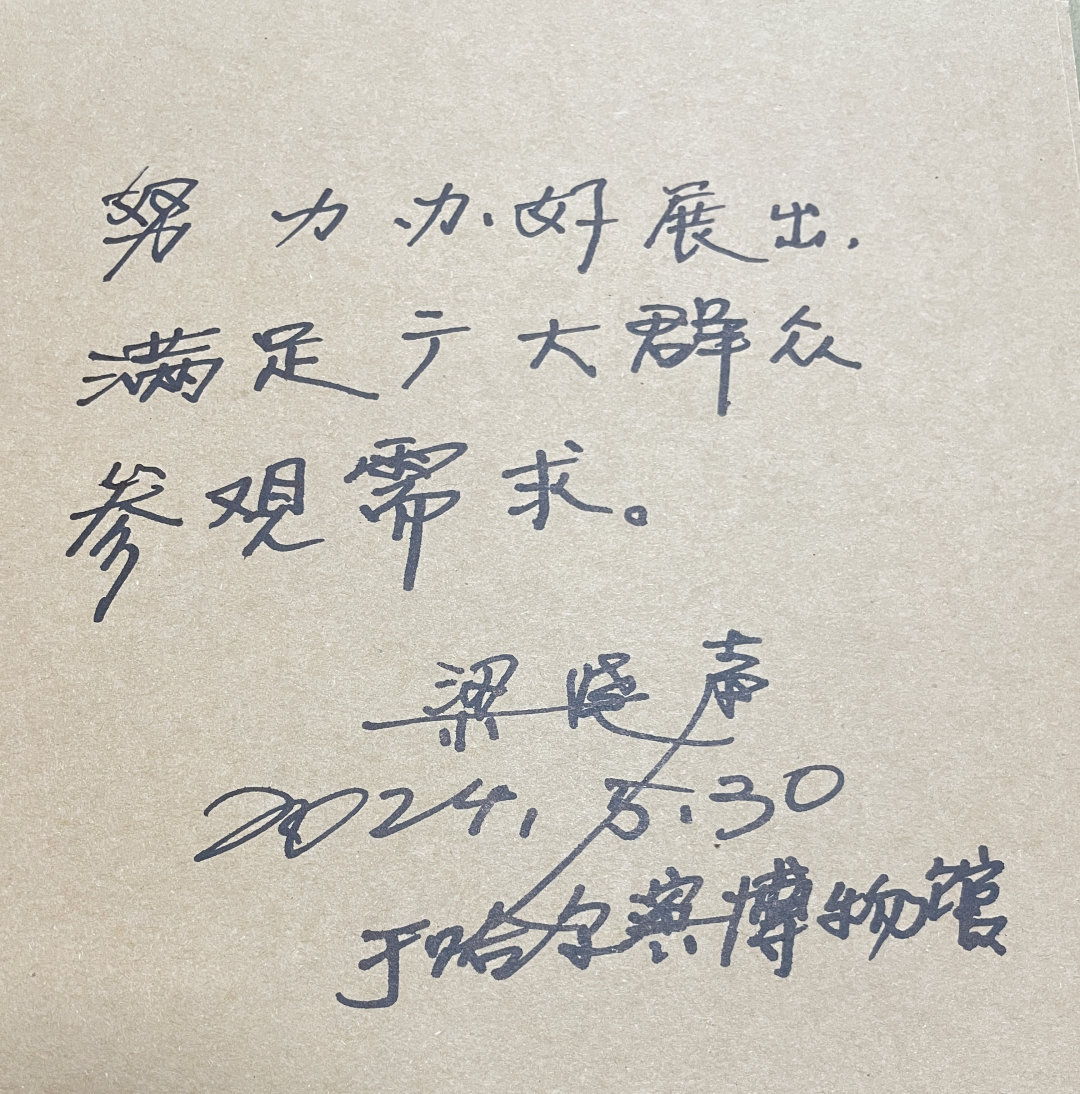 努力办好展出，
满足广大群众
参观需求。
梁晓声
2024.5.30
于哈尔滨博物馆